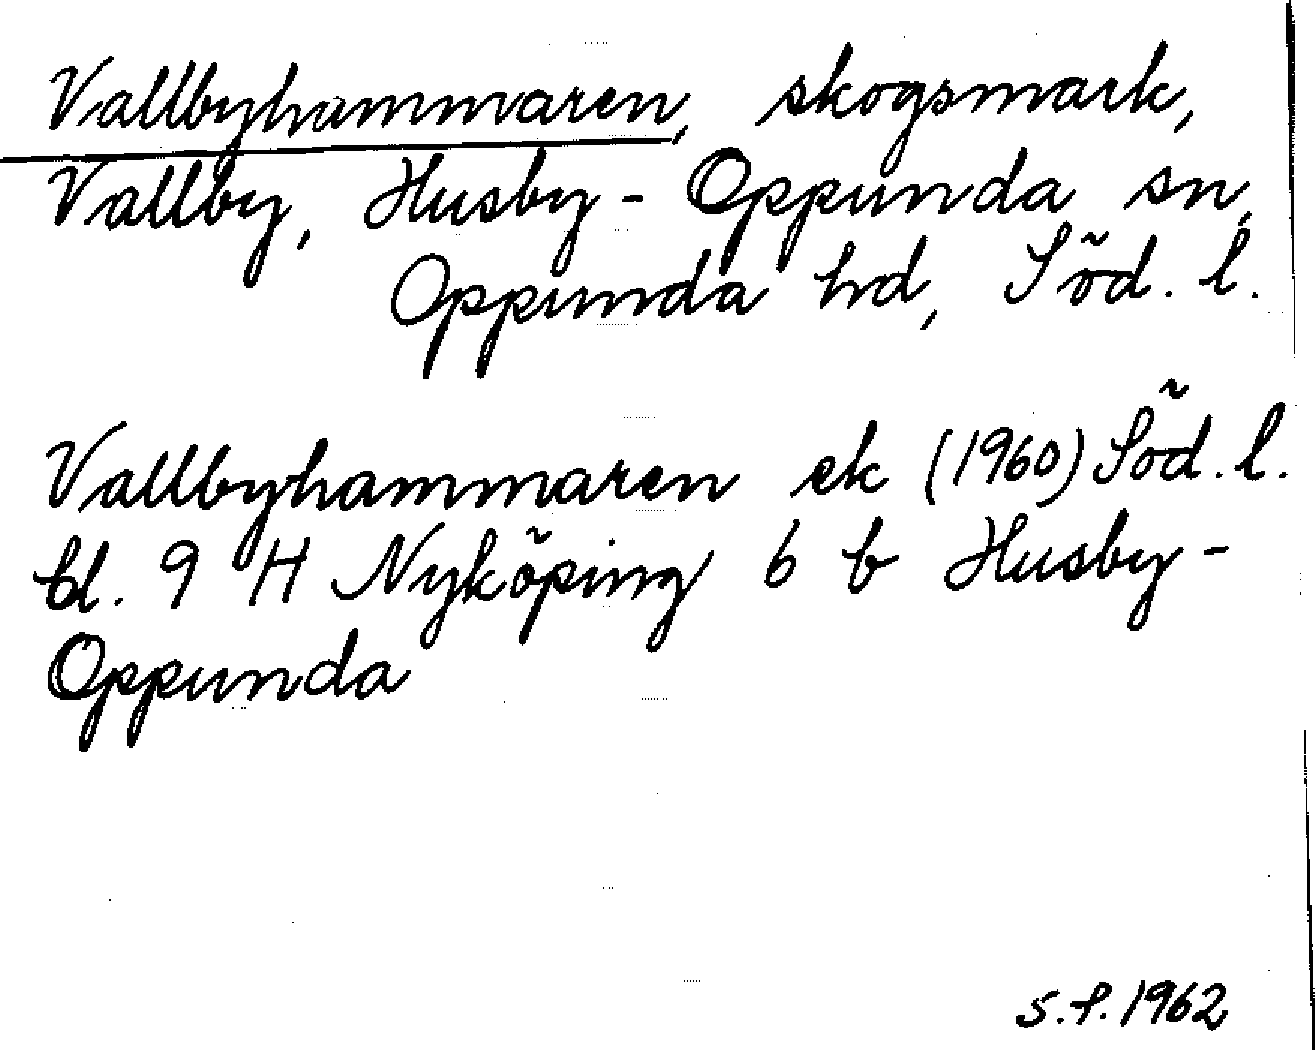 Vallbyhammaren, skogsmark,
Vallby, Husby-Oppunda sn,
Oppunda hd, Söd. l.
Vallbyhammaren ek (1960) Söd. l.
bl. 9 H Nyköping 6 b Husby-
Oppunda
S.f. 1962